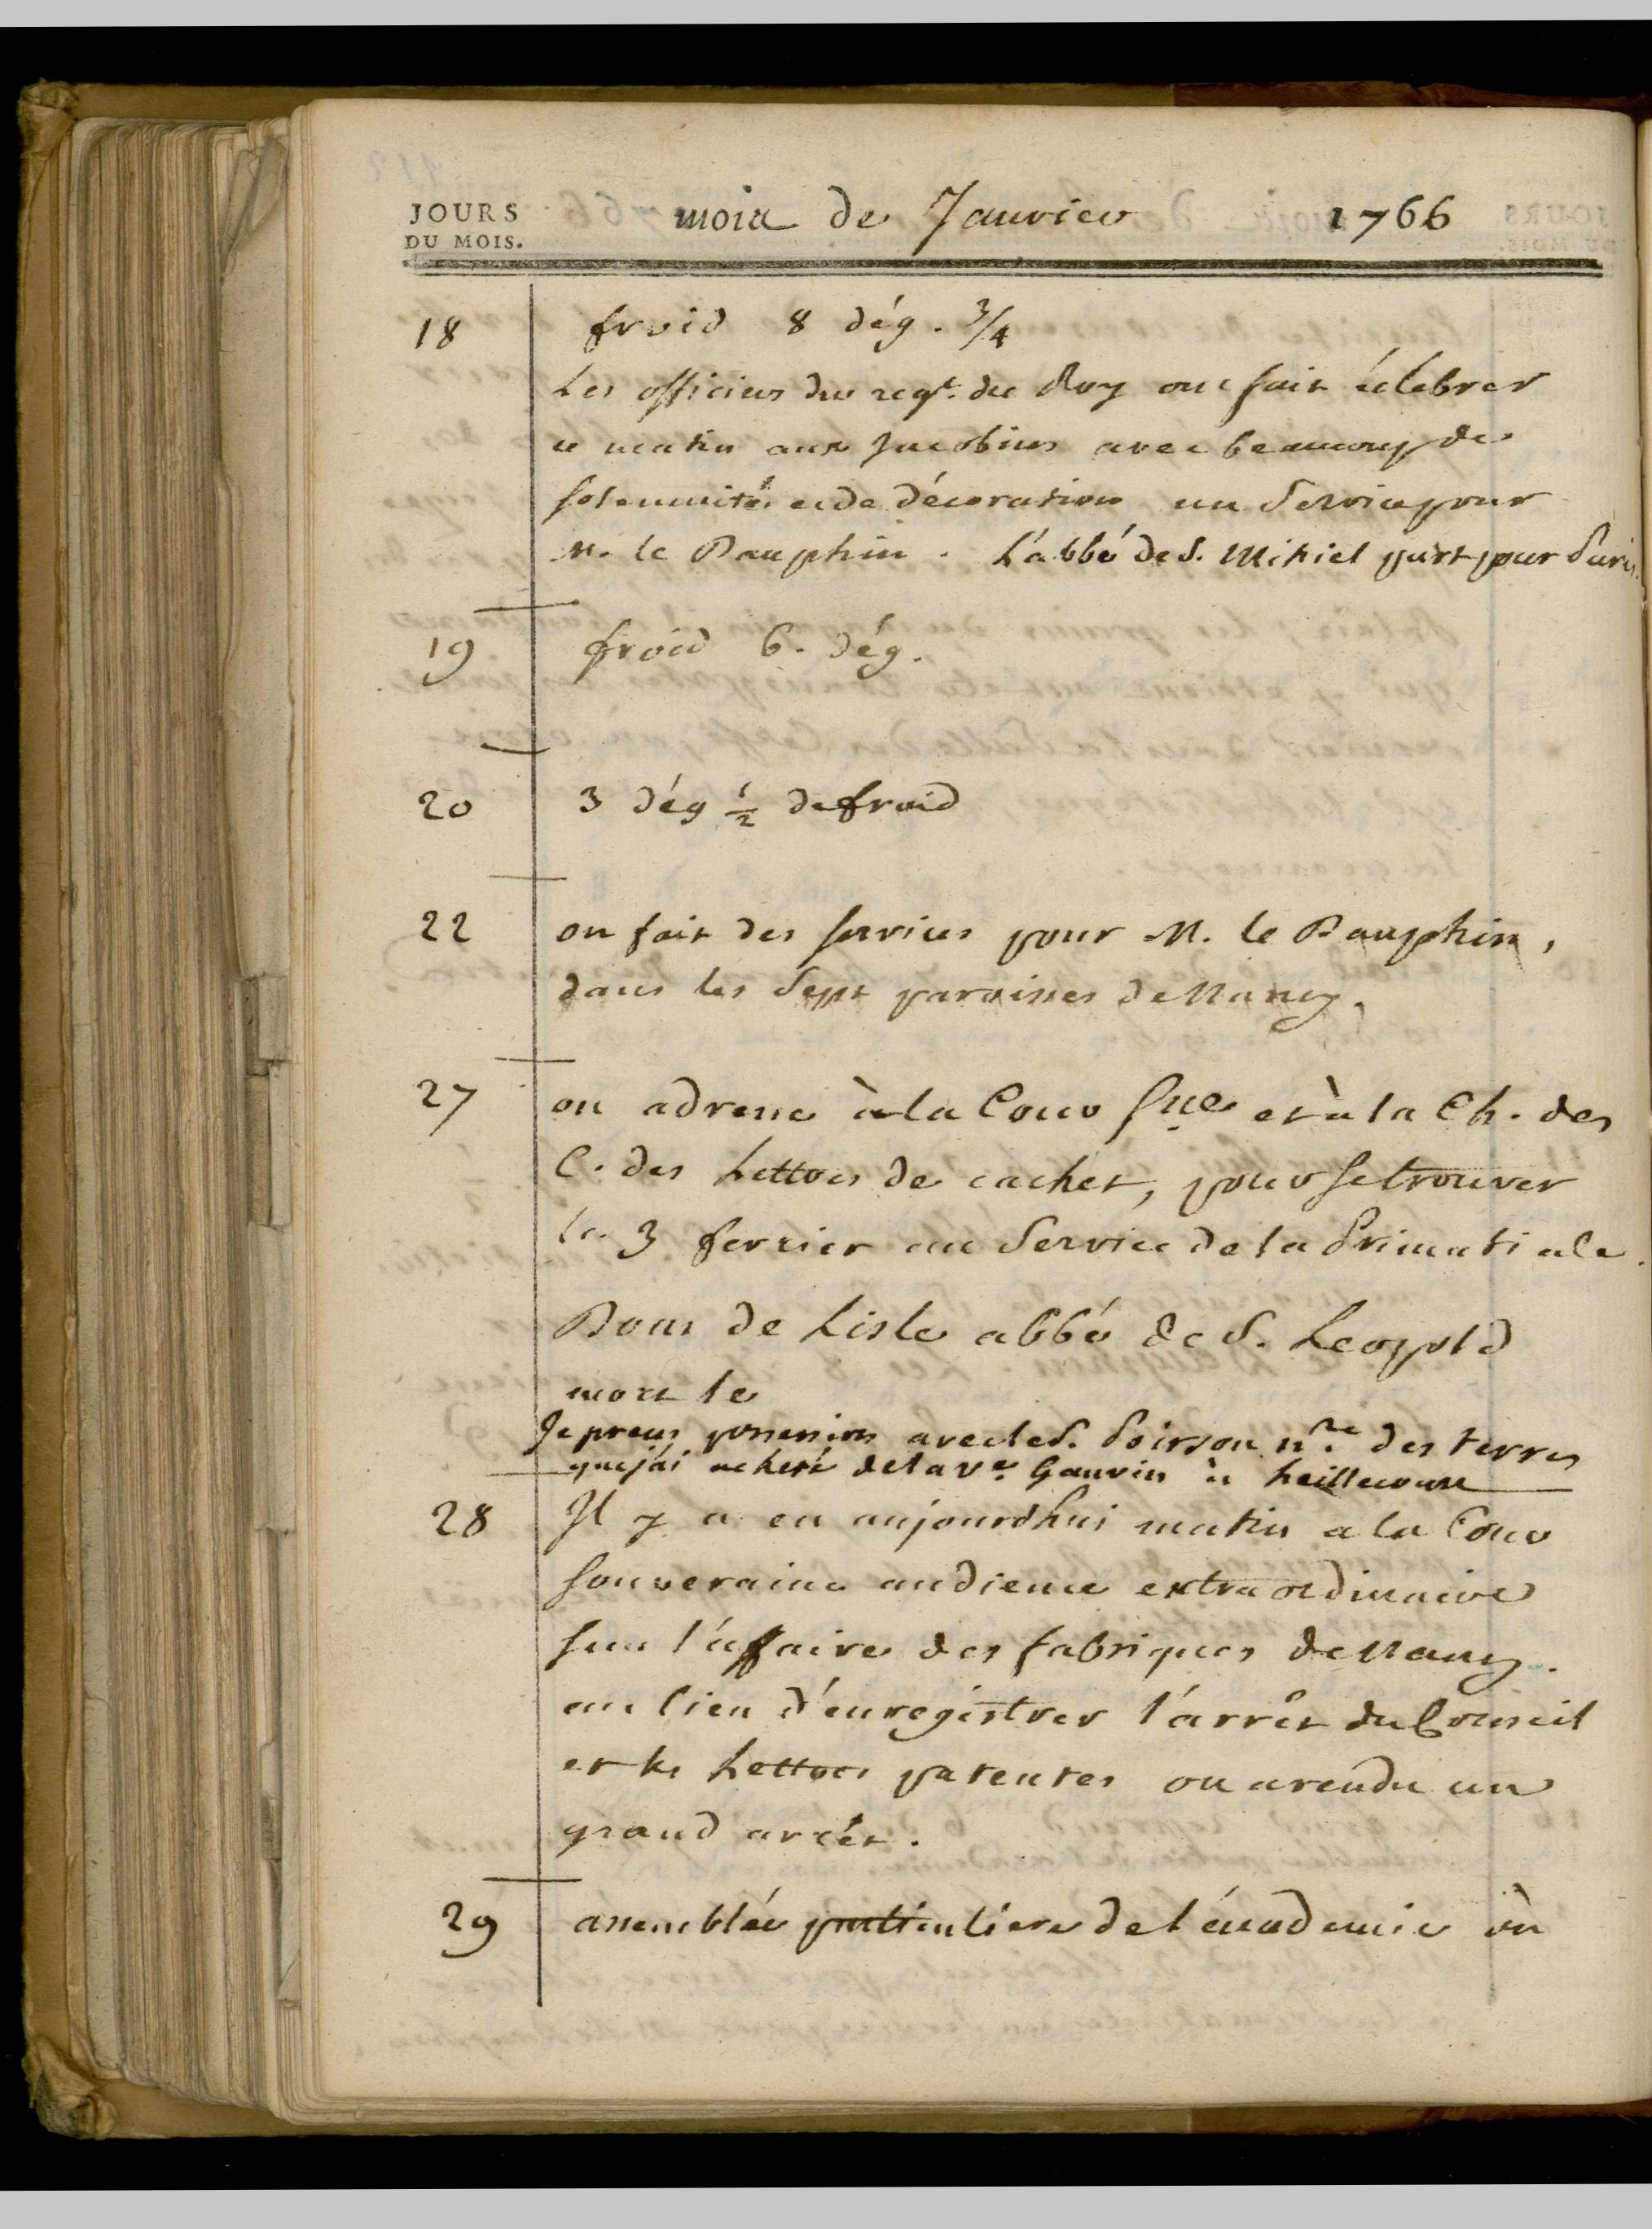 JOURS
DU MOIS.
mois de Janvier 1766
18 froid 8 dég. 3/4
Les officiers du regt. du Roy ont fait célebrer
ce matin aux Jacobins avec beaucoup de
solemnité et de décoration un Service pour
M. le Dauphin. L'abbé de S. Mihiel part pour Paris.
19 froid 6. dég.
20 3 dég 1/2 de froid
22 on fait des services pour M. le Dauphin,
dans les Sept paroisses de Nancy.
27 on adresse à la Cour sne et à la Ch. des
C. des Lettres de cachet, pour se trouver
le 3 fevrier au Service de la Primatiale.
Dom de Lisle abbé de S. Leopold
mort le
Je prens possession avec le S. Poirson nre des terres
que j'ai acheté de la ve Gauvin à heillecourt
28 Il y a eu aujourdhui matin a la Cour
souveraine audience extraordinaire
sur l'affaire des fabriques de Nancy.
au lieu d'enregistrer l'arrêt du Conseil
et les Lettres patentes on a rendu un
grand arrêt.
29 assemblée particuliere de l'académie où